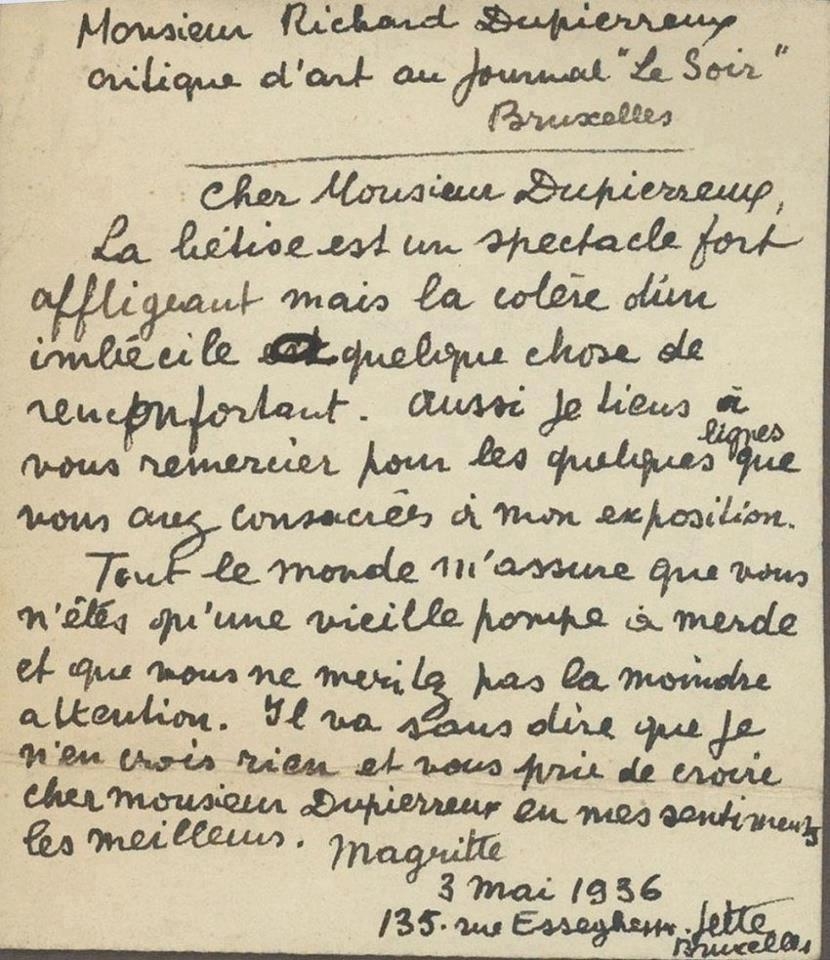 Monsieur Richard Dupierreux
critique d'art au Journal "Le Soir"
Bruxelles
Cher Monsieur Dupierreux,
La bêtise est un spectacle fort
affligeant mais la colère d'un
imbécile est quelque chose de
reconfortant. Aussi je tiens à
lignes
vous remercier pour les quelques que
vous avez consacrées à mon exposition.
Tout le monde m'assure que vous
n'êtes qu'une vieille pompe à merde
et que vous ne meritez pas la moindre
attention. Il va sans dire que je
n'en crois rien et vous prie de croire
cher monsieur Dupierreux en mes sentiments
les meilleurs. Magritte
3 mai 1936
135. rue Esseghem. Jette
Bruxelles